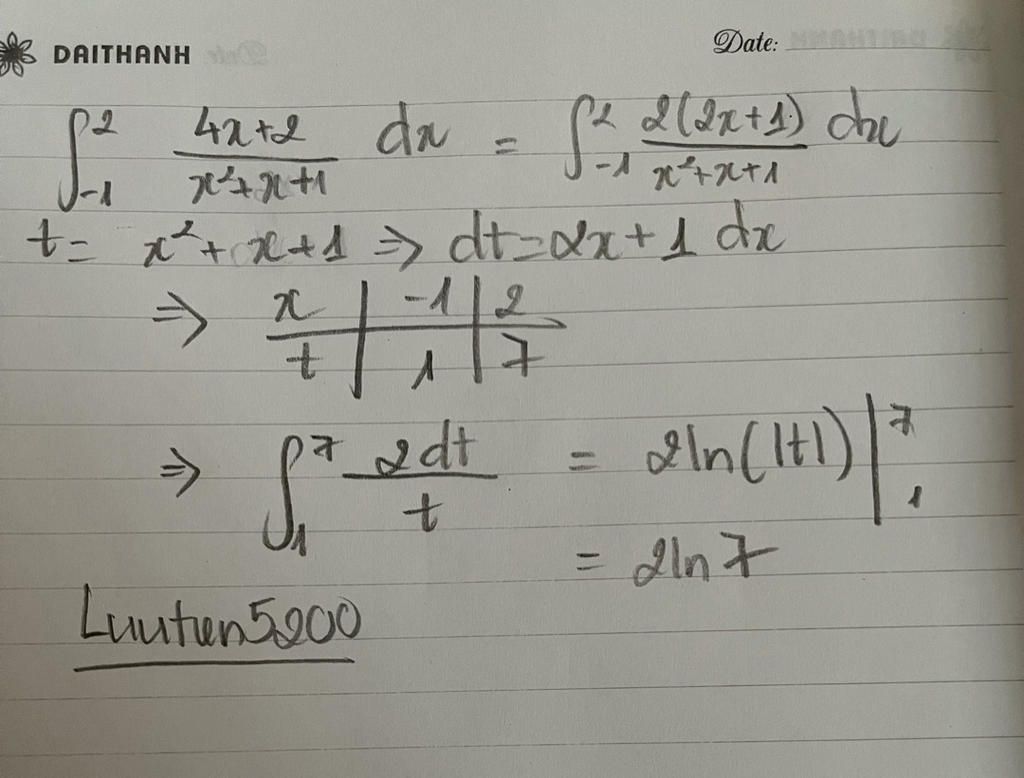 DAITHANH Date:
∫_{-1}^{2} (4x+2)/(x²+x+1) dx = ∫_{-1}^{2} 2(2x+1)/(x²+x+1) dx
t = x²+x+1 => dt=2x+1 dx
=> x | -1 | 2
t | 1 | 7
=> ∫_{1}^{7} 2dt/t = 2ln(|t|) |_{1}^{7}
= 2ln7
Luutien5200